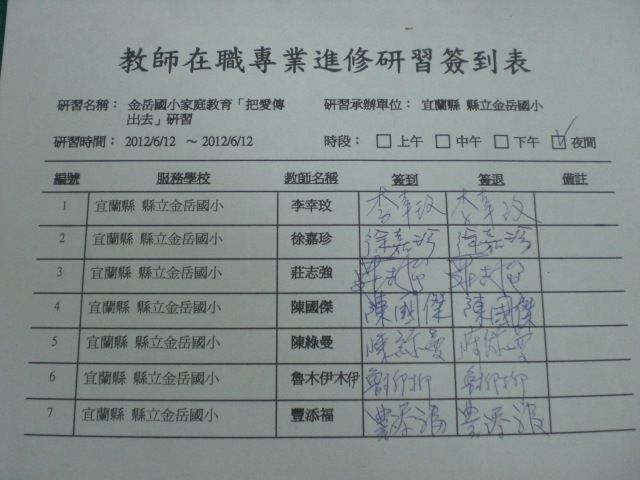 教師在職專業進修研習簽到表
研習名稱： 金岳國小家庭教育「把愛傳 研習承辦單位： 宜蘭縣 縣立金岳國小
出去」研習
研習時間： 2012/6/12 ～2012/6/12 時段： □上午 □中午 □下午 ☑夜間
編號 服務學校 教師名稱 簽到 簽退 備註
1 宜蘭縣 縣立金岳國小 李幸玟 李幸玟 李幸玟
2 宜蘭縣 縣立金岳國小 徐嘉珍 徐嘉珍 徐嘉珍
3 宜蘭縣 縣立金岳國小 莊志強
4 宜蘭縣 縣立金岳國小 陳國傑 陳國傑 陳國傑
5 宜蘭縣 縣立金岳國小 陳綠曼 陳綠曼 陳綠曼
6 宜蘭縣 縣立金岳國小 魯木伊木伊
7 宜蘭縣 縣立金岳國小 豐添福 豐添福 豐添福